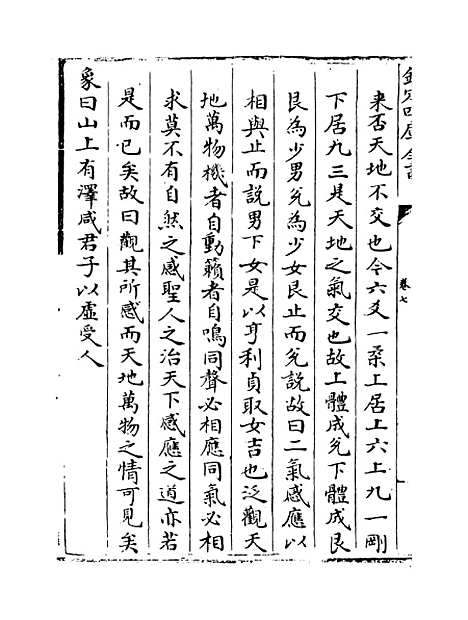 欽定四庫全書
卷七
來否天地不交也今六爻一柔上居上六上九一剛
下居九三是天地之氣交也故上體成兌下體成艮
艮為少男兌為少女艮止而兌說故曰二氣感應以
相與止而說男下女是以亨利貞取女吉也泛觀天
地萬物機者自動籟者自鳴同聲必相應同氣必相
求莫不有自然之感聖人之治天下感應之道亦若
是而已矣故曰觀其所感而天地萬物之情可見矣
象曰山上有澤咸君子以虛受人